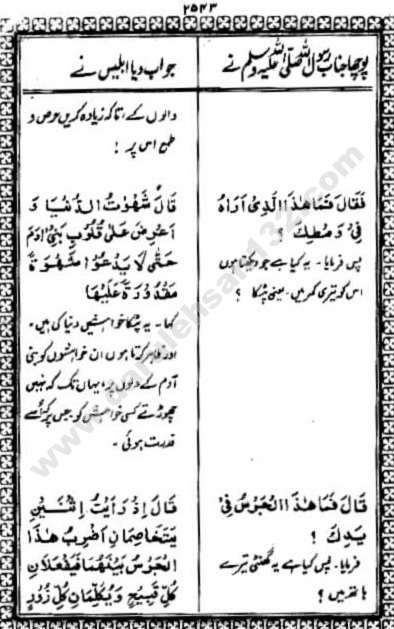 ۲۵۴۳
پوچھا جناب رسول اللہ صلی اللہ علیہ وسلم نے
جواب دیا ابلیس نے
والوں کے تاکہ زیادہ کریں حرص و
طمع اس پر !
فَقَالَ فَمَا هٰذَا الَّذِیْ اَرَاهُ
فِیْ وَسْطِكَ ؟
پس فرمایا۔ یہ کیا ہے جو دیکھتا ہوں
اس کو تیری کمر میں۔ یعنی پٹکا ؟
قَالَ شَهَوٰتُ الدُّنْیَا وَ
اَعْرِضُ عَلٰی قُلُوْبِ بَنِیْ اٰدَمَ
حَتّٰی لَا یَدَعُوْا شَهْوَةً
مَقْدُوْرَةً عَلَیْهَا
کہا۔ یہ پٹکا خواہشیں دنیا کی ہیں۔
اور ظاہر کرتا ہوں ان خواہشوں کو بنی
آدم کے دلوں پر، یہاں تک کہ نہیں
چھوڑتے کسی خواہش کو جس پر کہ اُسے
قدرت ہوئی۔
قَالَ فَمَا هٰذَا الْجَرْسُ فِیْ
یَدِكَ ؟
فرمایا۔ پس کیا ہے یہ گھنٹی تیرے
ہاتھ میں ؟
قَالَ اِذْ رَاَیْتُ اِثْنَیْنِ
یَتَخَاصَمَانِ اَضْرِبُ هٰذَا
الْجَرْسُ بَیْنَهُمَا فَیَفْعَلَانِ
كُلَّ قَبِیْحٍ وَیُكَلِّمَانِ كُلَّ زُوْرٍ
www.daralehsan132.com